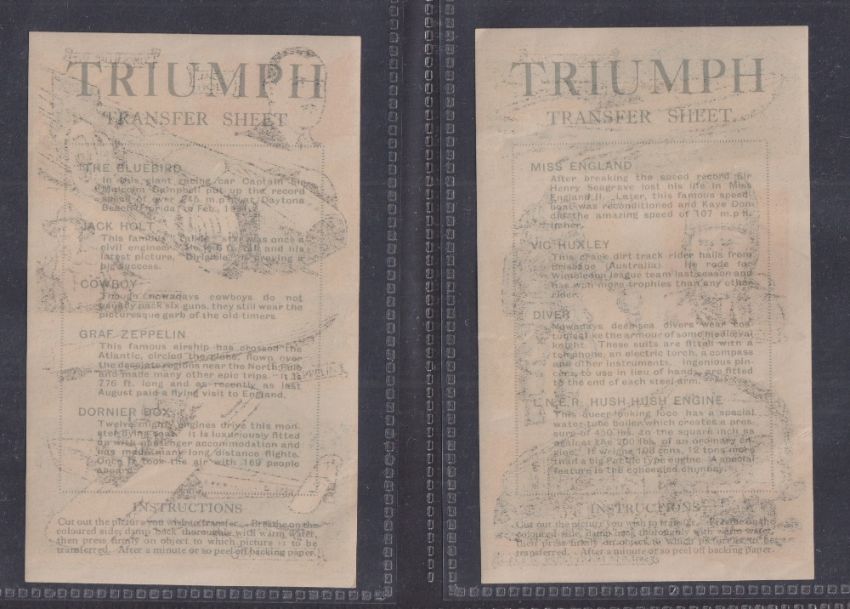 TRIUMPH
TRANSFER SHEET
THE BLUEBIRD
In this giant racing car Captain Sir
Malcolm Campbell put up the record
speed of over 245 m.p.h. at Daytona
Beach, Florida, in Feb.,
JACK HOLT
This famous star was once a
civil engineer. He is 6 ft. tall and his
latest picture, "Dirigible" is proving a
big success.
COWBOY
Though nowadays cowboys do not
usually pack six guns, they still wear the
picturesque garb of the old-timers.
GRAF ZEPPELIN
This famous airship has crossed the
Atlantic, circled the globe, flown over
the desolate regions near the North Pole
and made many other epic trips. It is
776 ft. long and as recently as last
August paid a flying visit to England.
DORNIER DOX
Twelve mighty engines drive this mon-
ster flying boat. It is luxuriously fitted
up with passenger accommodation and
has made many long distance flights.
Once it took the air with 169 people
aboard.
INSTRUCTIONS
Cut out the picture you wish to transfer. Breathe on the
coloured side, damp back thoroughly with warm water,
then press firmly on object to which picture is to be
transferred. After a minute or so peel off backing paper.
TRIUMPH
TRANSFER SHEET.
MISS ENGLAND
After breaking the speed record Sir
Henry Seagrave lost his life in Miss
England II. Later, this famous speed-
boat was reconditioned and Kaye Don
did the amazing speed of 107 m.p.h.
in her.
VIC HUXLEY
This crack dirt track rider hails from
Brisbane (Australia). He rode for
Wimbledon league team last season and
has won more trophies than any other
rider.
DIVER
Nowadays deep sea divers wear cos-
tumes like the armour of some mediæval
knight. These suits are fitted with a
telephone, an electric torch, a compass
and other instruments. Ingenious pin-
cers to use in lieu of hands are fitted
to the end of each steel arm.
L.N.E.R. HUSH-HUSH ENGINE
This queer-looking loco has a special
water-tube boiler which creates a pres-
sure of 450 lbs. to the square inch as
against the 200 lbs. of an ordinary en-
gine. It weighs 103 tons, 12 tons more
than a big Pacific type engine. A special
feature is the concealed chimney.
INSTRUCTIONS
Cut out the picture you wish to transfer. Breathe on the
coloured side, damp back thoroughly with warm water,
then press firmly on object to which picture is to be
transferred. After a minute or so peel off backing paper.